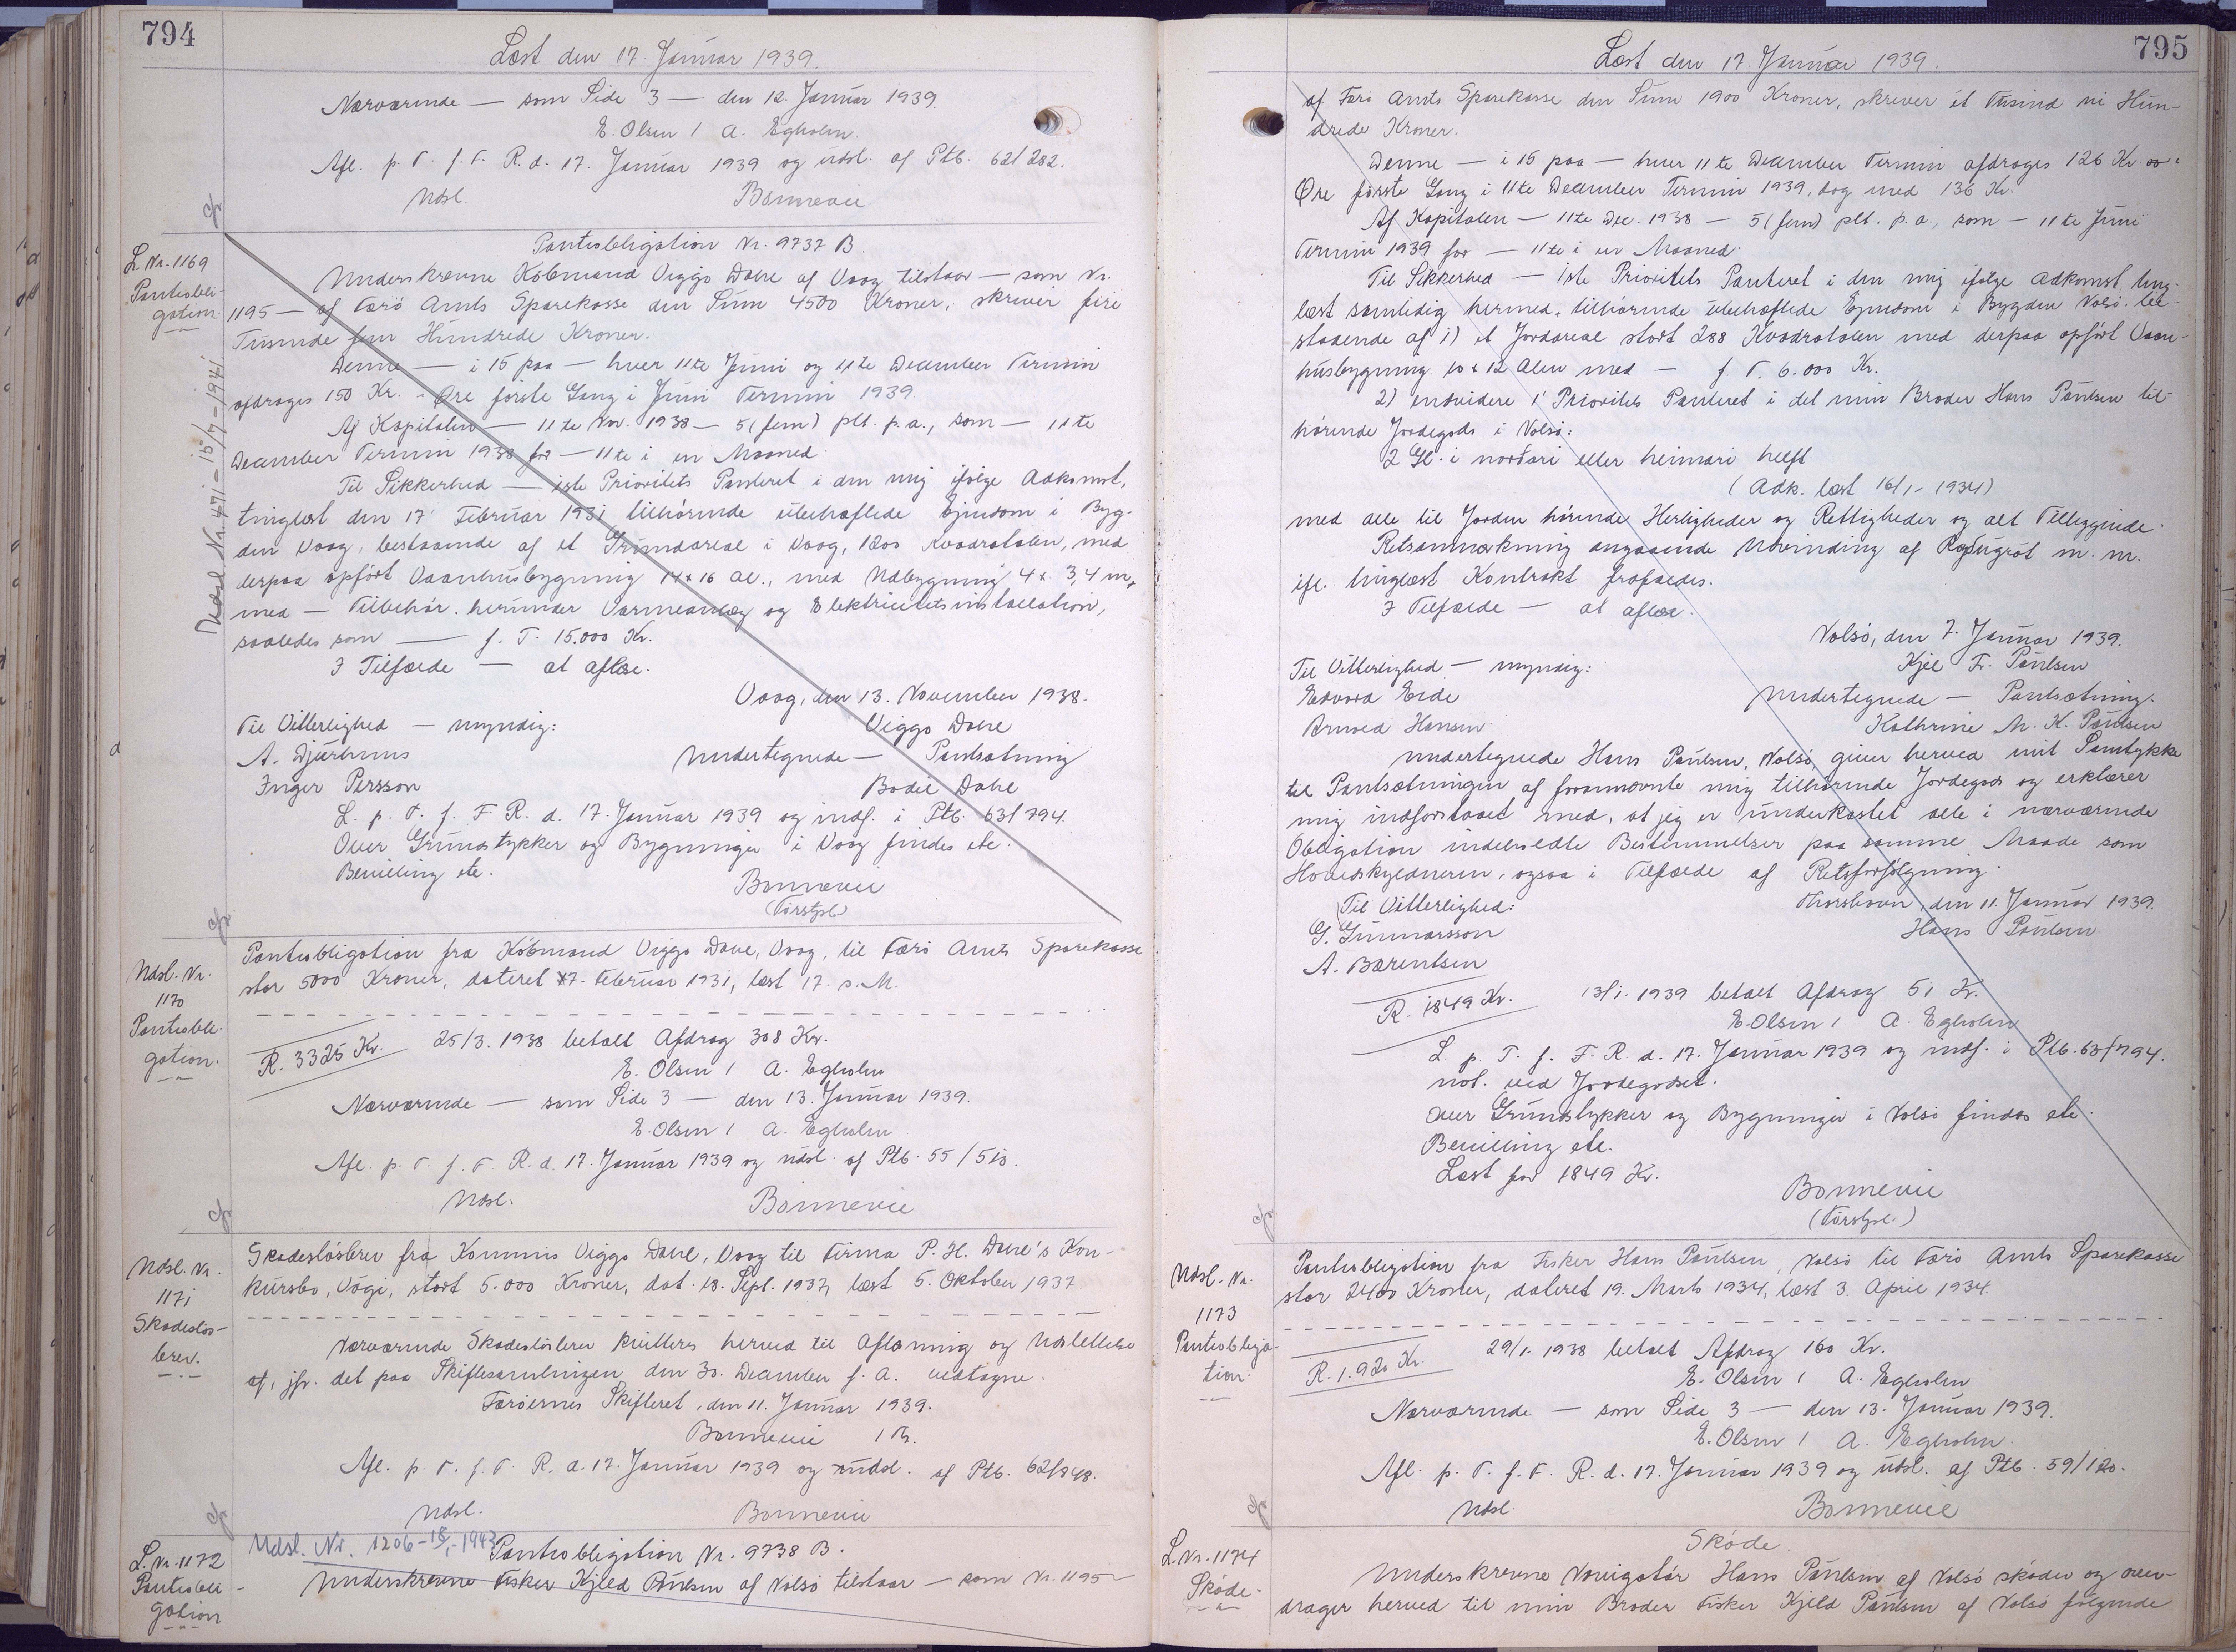 794
Læst den 17. Januar 1939.
Nærværende — som Side 3 — den 12. Januar 1939.
E. Olsen / A. Egholm.
Afl. p. T. f. F. R. d. 17. Januar 1939 og udsl. af Ptb. 62/282.
Udsl. Bonnevie
L. Nr. 1169
Pantobli-
gation
Udsl. Nr. 471 - 15/7 - 1941
Pantobligation Nr. 9737 B.
Underskrevne Købmand Viggo Dahl af Vaag tilstaar — som Nr.
1195 — af Færø Amts Sparekasse den Sum 4500 Kroner, skriver fire
Tusinde fem Hundrede Kroner.
Denne — i 15 paa — hver 11te Juni og 11te December Termin
afdrages 150 Kr. - Øre første Gang i Juni Termin 1939.
Af Kapitalen — 11te Nov. 1938 — 5 (fem) pct. p.a., som — 11te
December Termin 1938 for — 11te i en Maaned.
Til Sikkerhed — 1ste Prioritets Panteret i den mig ifølge Adkomst,
tinglæst den 17' Februar 1931 tilhørende ubehæftede Ejendom i Byg-
den Vaag, bestaaende af et Grundareal i Vaag, 1200 Kvadratalen, med
derpaa opført Vaanhusbygning 14 x 16 Al., med Udbygning 4 x 3,4 m,
med — Tilbehør, herunder Varmeanlæg og Elektricitetsinstallation,
saaledes som — f. T. 15.000 Kr.
I Tilfælde — at aflæs.
Vaag, den 13. November 1938.
Til Vitterlighed — myndig: Viggo Dahl
A. Djurhuus Undertegnede — Pantsætning
Inger Persson Bodil Dahl
L. p. T. f. F. R. d. 17. Januar 1939 og indf. i Ptb. 63/794.
Over Grundstykker og Bygninger i Vaag findes ete.
Bevilling ete.
Bonnevie
(Førstpl.)
Udsl. Nr.
1170
Pantobli-
gation.
Pantobligation fra Købmand Viggo Dahl, Vaag, til Færø Amts Sparekasse
stor 5000 Kroner, dateret 17. Februar 1931, læst 17. s. M.
R. 3325 Kr. 25/3. 1938 betalt Afdrag 308 Kr.
E. Olsen / A. Egholm
Nærværende — som Side 3 — den 13. Januar 1939.
E. Olsen / A. Egholm
Afl. p. T. f. F. R. d. 17. Januar 1939 og udsl. af Ptb. 55/513.
Udsl. Bonnevie
Udsl. Nr.
1171
Skadesløs-
brev.
Skadesløsbrev fra Kommis Viggo Dahl, Vaag til Firma P. H. Dahl's Kon-
kursbo, Vági, stort 5.000 Kroner, dat. 18. Sept. 1937, læst 5. Oktober 1937.
Nærværende Skadesløsbrev kvitteres herved til Aflæsning og Udslettelse
af, jfr. det paa Skiftesamlingen den 30. December f. A. vedtagne.
Færøernes Skifteret, den 11. Januar 1939.
Bonnevie
Afl. p. T. f. F. R. d. 17. Januar 1939 og udsl. af Ptb. 62/848.
Udsl. Bonnevie
L. Nr. 1172
Pantobli-
gation
Udsl. Nr. 1206 - 18/1 - 1943
Pantobligation Nr. 9738 B.
Underskrevne Fisker Kjeld Paulsen af Nolsø tilstaar — som Nr. 1195 —
795
Læst den 17. Januar 1939.
af Færø Amts Sparekasse den Sum 1900 Kroner, skriver et Tusind ni Hun-
drede Kroner.
Denne — i 15 paa — hver 11te December Termin afdrages 126 Kr. 00
Øre første Gang i 11te December Termin 1939, dog med 136 Kr.
Af Kapitalen — 11te Dec. 1938 — 5 (fem) pct. p.a., som — 11te Juni
Termin 1939 for — 11te i en Maaned.
Til Sikkerhed — 1ste Prioritets Panteret i den mig ifølge Adkomst, ting-
læst samtidig hermed, tilhørende ubehæftede Ejendom i Bygden Nolsø, be-
staaende af 1) et Jordareal stort 288 Kvadratalen med derpaa opført Vaan-
husbygning 10 x 12 Alen med — f. T. 6.000 Kr.
2) endvidere 1' Prioritets Panteret i det min Broder Hans Paulsen til-
hørende Jordegods i Nolsø:
2 Gl. i norðari eller heimari helft
(Adk. læst 16/1 - 1934)
med alle til Jorden hørende Herligheder og Rettigheder og alt Tilliggende.
Retsanmærkning angaaende Udvinding af m. m.
ifl. tinglæst Kontrakt frafaldes.
I Tilfælde — at aflæs.
Nolsø, den 7. Januar 1939.
Til Vitterlighed — myndig: Kjel Fr. Paulsen
Edvard Eide Undertegnede — Pantsætning.
Arnved Hansen Kathrine M. K. Paulsen
Undertegnede Hans Paulsen, Nolsø, giver herved mit Samtykke
til Pantsætningen af forannævnte mig tilhørende Jordegods og erklærer
mig indforstaaet med, at jeg er underkastet alle i nærværende
Obligation indeholdte Bestemmelser paa samme Maade som
Hovedskyldneren, ogsaa i Tilfælde af Retsforfølgning.
Til Vitterlighed: Thorshavn, den 11. Januar 1939.
G. Gunnarsson Hans Paulsen
A. Bærentsen
R. 1849 Kr. 13/1. 1939 betalt Afdrag 51 Kr.
E. Olsen / A. Egholm
L. p. T. f. F. R. d. 17. Januar 1939 og indf. i Ptb. 63/794.
not. ved Jordegodset.
Over Grundstykker og Bygninger i Nolsø findes ete.
Bevilling ete.
Læst for 1849 Kr.
Bonnevie
(Førstpl.)
Udsl. Nr.
1173
Pantobliga-
tion.
Pantobligation fra Fisker Hans Paulsen, Nolsø til Færø Amts Sparekasse
stor 2400 Kroner, dateret 19. Marts 1934, læst 3. April 1934.
R. 1.920 Kr. 29/1. 1938 betalt Afdrag 160 Kr.
E. Olsen / A. Egholm
Nærværende — som Side 3 — den 13. Januar 1939.
E. Olsen / A. Egholm.
Afl. p. T. f. F. R. d. 17. Januar 1939 og udsl. af Ptb. 59/120.
Udsl. Bonnevie
L. Nr. 1174
Skøde.
Skøde.
Underskrevne Navigatør Hans Paulsen af Nolsø skøder og over-
drager herved til min Broder Fisker Kjeld Paulsen af Nolsø følgende